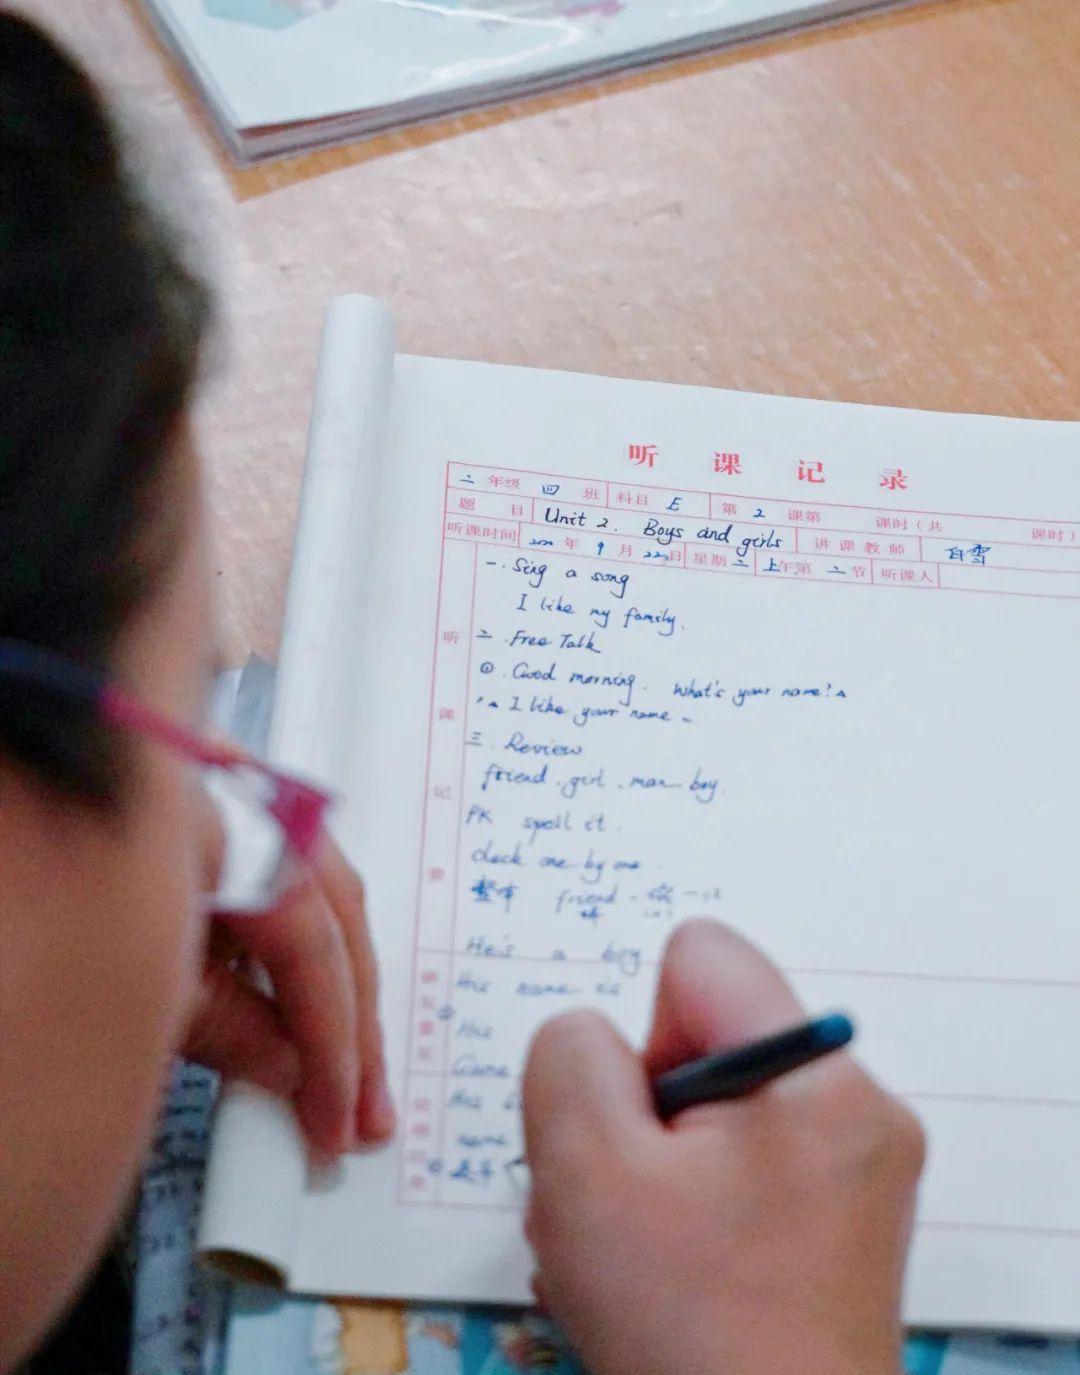 听课记录
二 年级 四 班 科目 E 第 2 课第 课时(共 课时)
题目 Unit 2. Boys and girls 讲课教师 白雪
听课时间 年 9 月 22日 星期二 上午第 二 节 听课人
听课记要
一. Sing a song
I like my family.
二. Free Talk
①. Good morning. What's your name?
I like your name
三. Review
friend. girl. man boy.
PK spell it.
one by one.
friend
He's a boy
His name is
His
Game
His
name